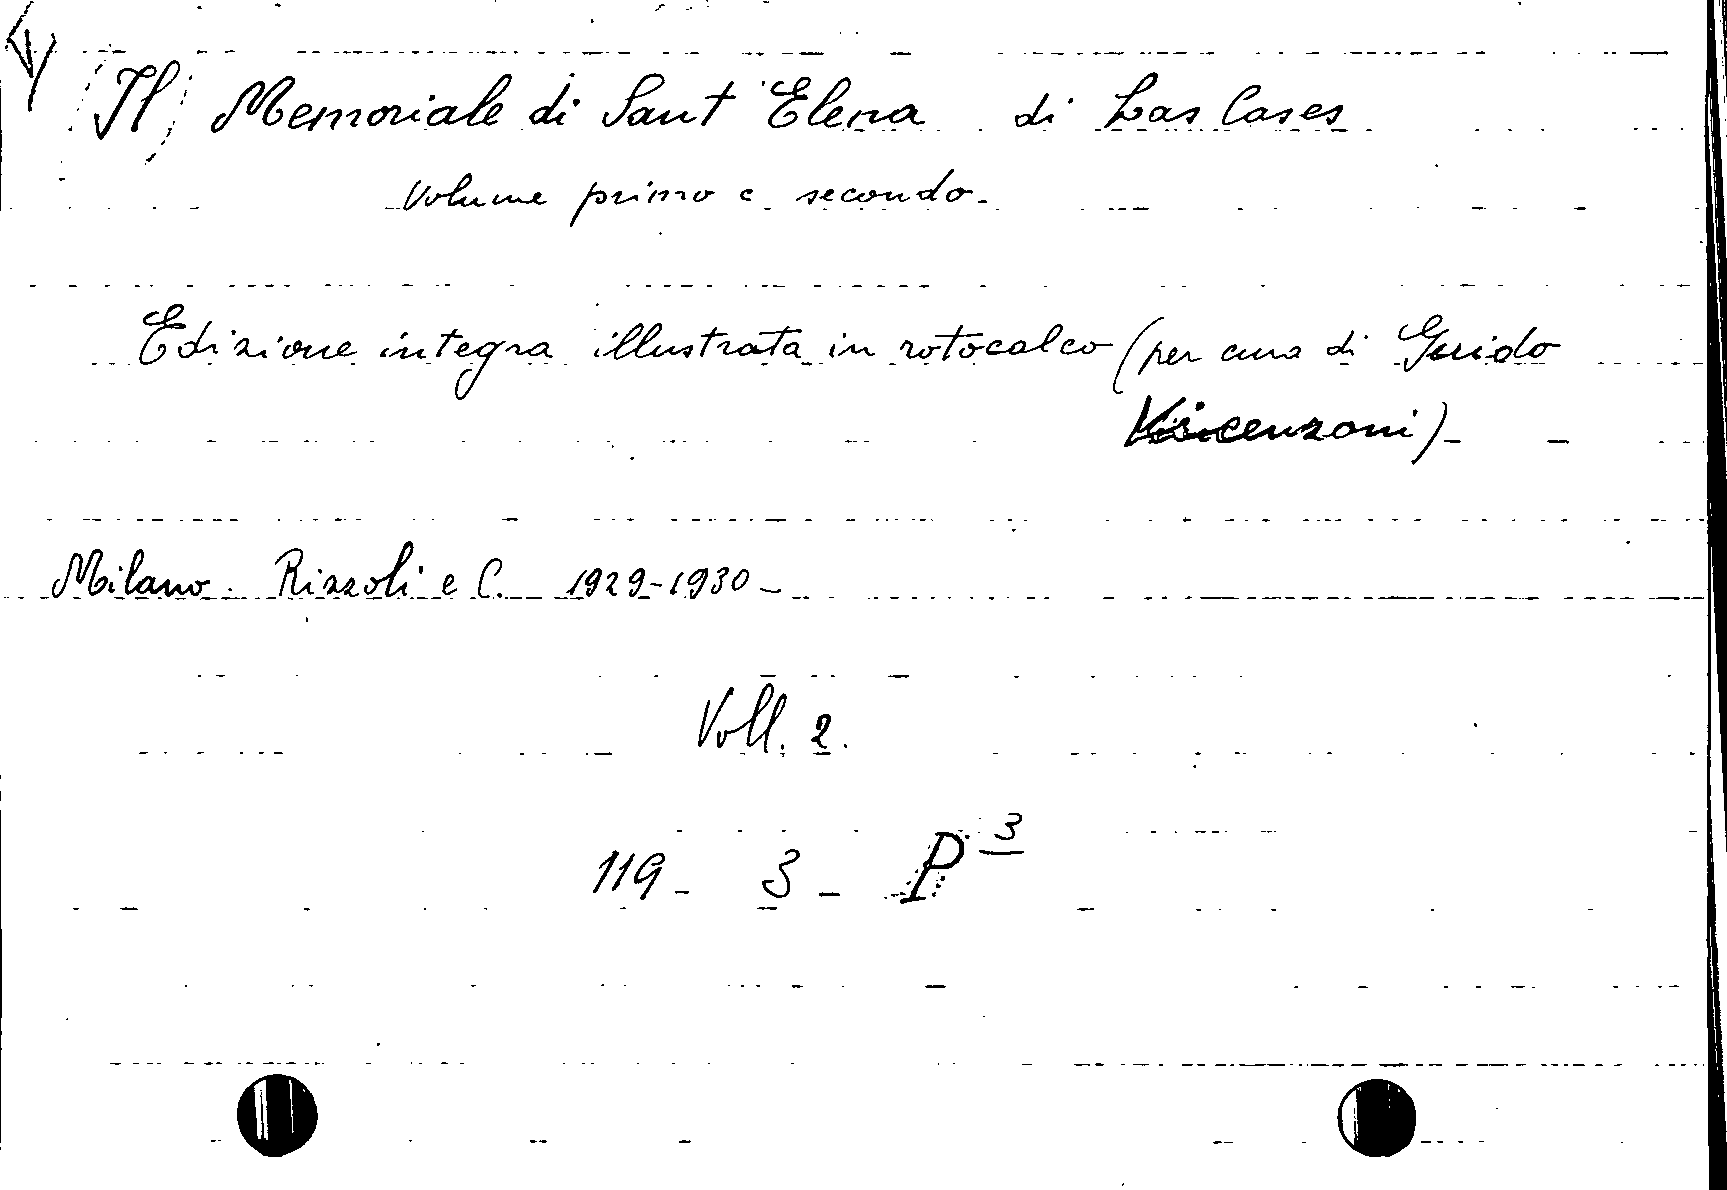 (Il) Memoriale di Sant'Elena di Las Cases
Volume primo e secondo.
Edizione integra illustrata in rotocalco (per cura di Guido
Vincenzoni)
Milano. Rizzoli e C. 1929-1930
Voll. 2.
119 - 3 - P 3